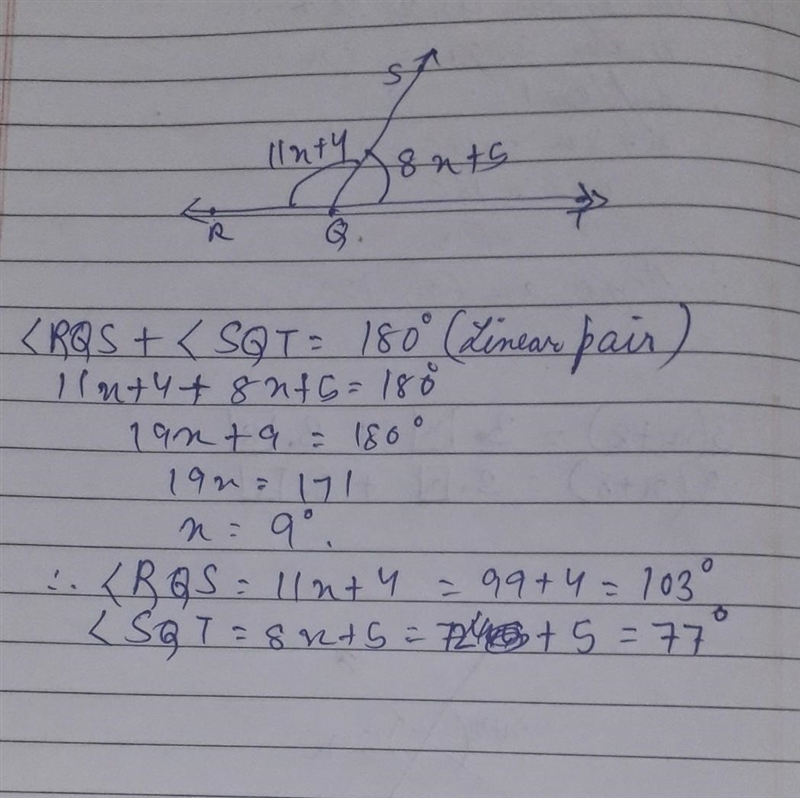 S
11x+4 8x+5
R Q. T
<RQS + <SQT = 180° (Linear pair)
11x+4 + 8x+5 = 180°
19x + 9 = 180°
19x = 171
x = 9°.
∴ <RQS = 11x+4 = 99+4 = 103°
<SQT = 8x+5 = 72 + 5 = 77°